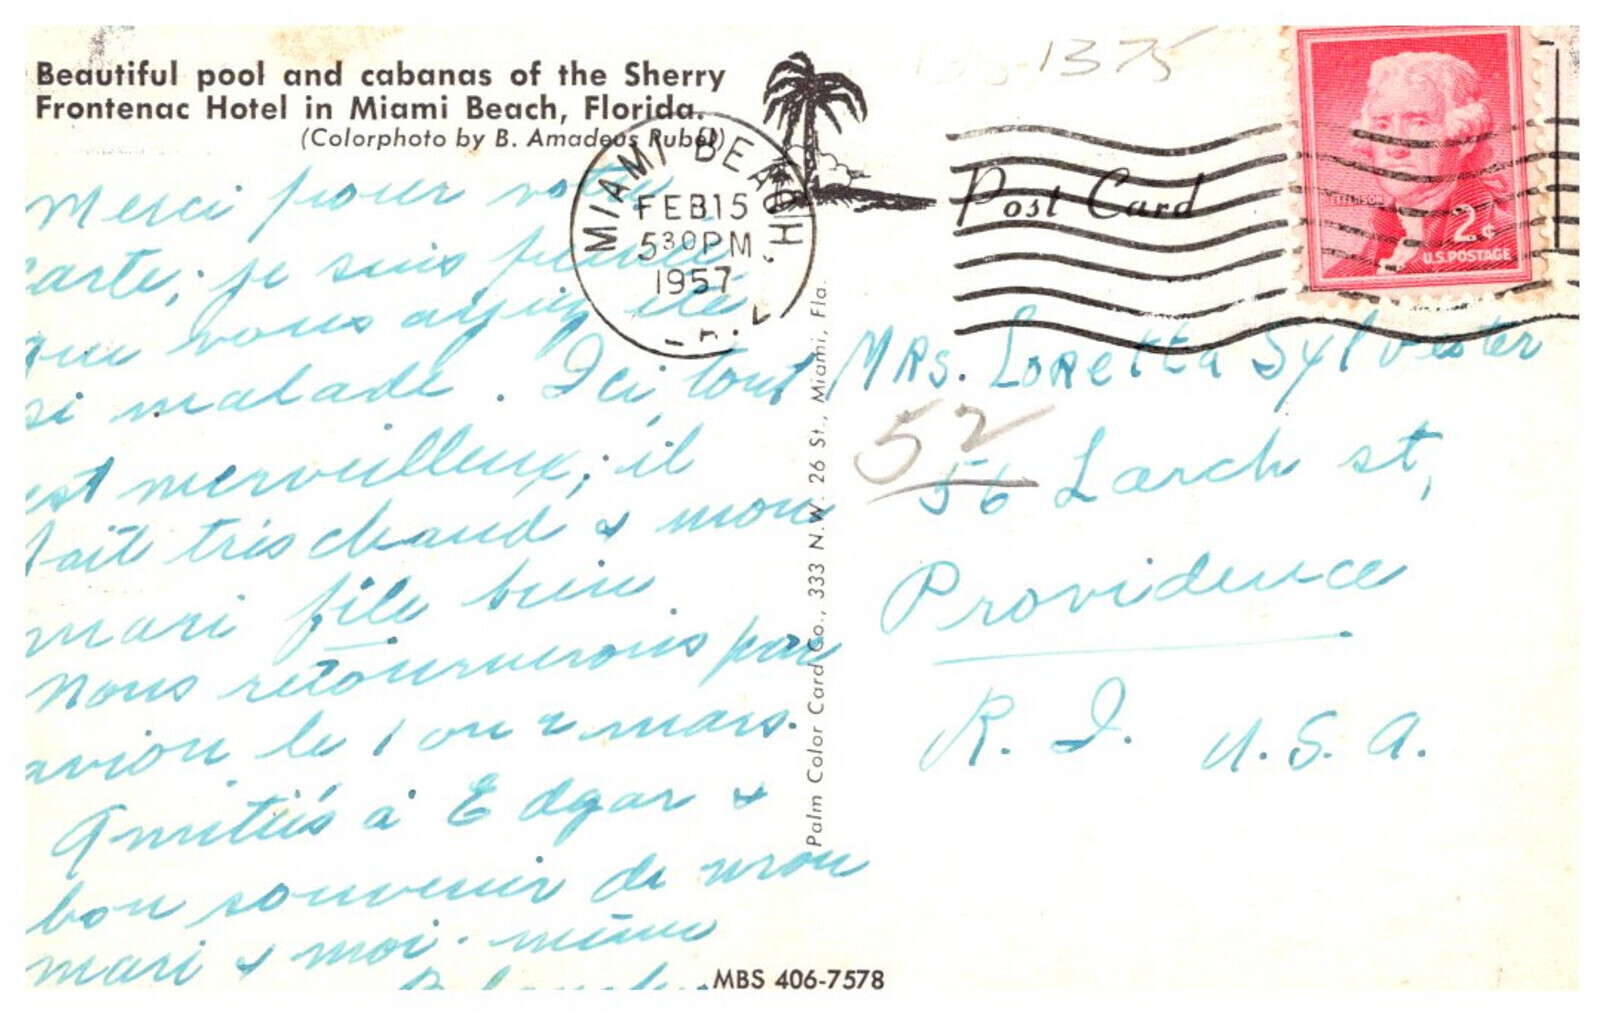 Beautiful pool and cabanas of the Sherry
Frontenac Hotel in Miami Beach, Florida.
(Colorphoto by B. Amadeus Rubel)
1375
MIAMI BEACH
FEB 15
530PM
1957
FLA.
Post Card
JEFFERSON
2¢
U.S. POSTAGE
Merci pour votre
carte; je suis peinée
que vous ayiez été
si malade. Ici, tout
est merveilleux; il
fait très chaud & mon
mari file bien
Nous retournerons par
avion le 1 ou 2 mars.
Amitiés à Edgar &
bon souvenir de mon
mari & moi-même
Blanche
Palm Color Card Co., 333 N.W. 26 St., Miami, Fla.
MRS. LORETTA Sylvester
52
56 Larch st,
Providence
R. I. U.S.A.
MBS 406-7578